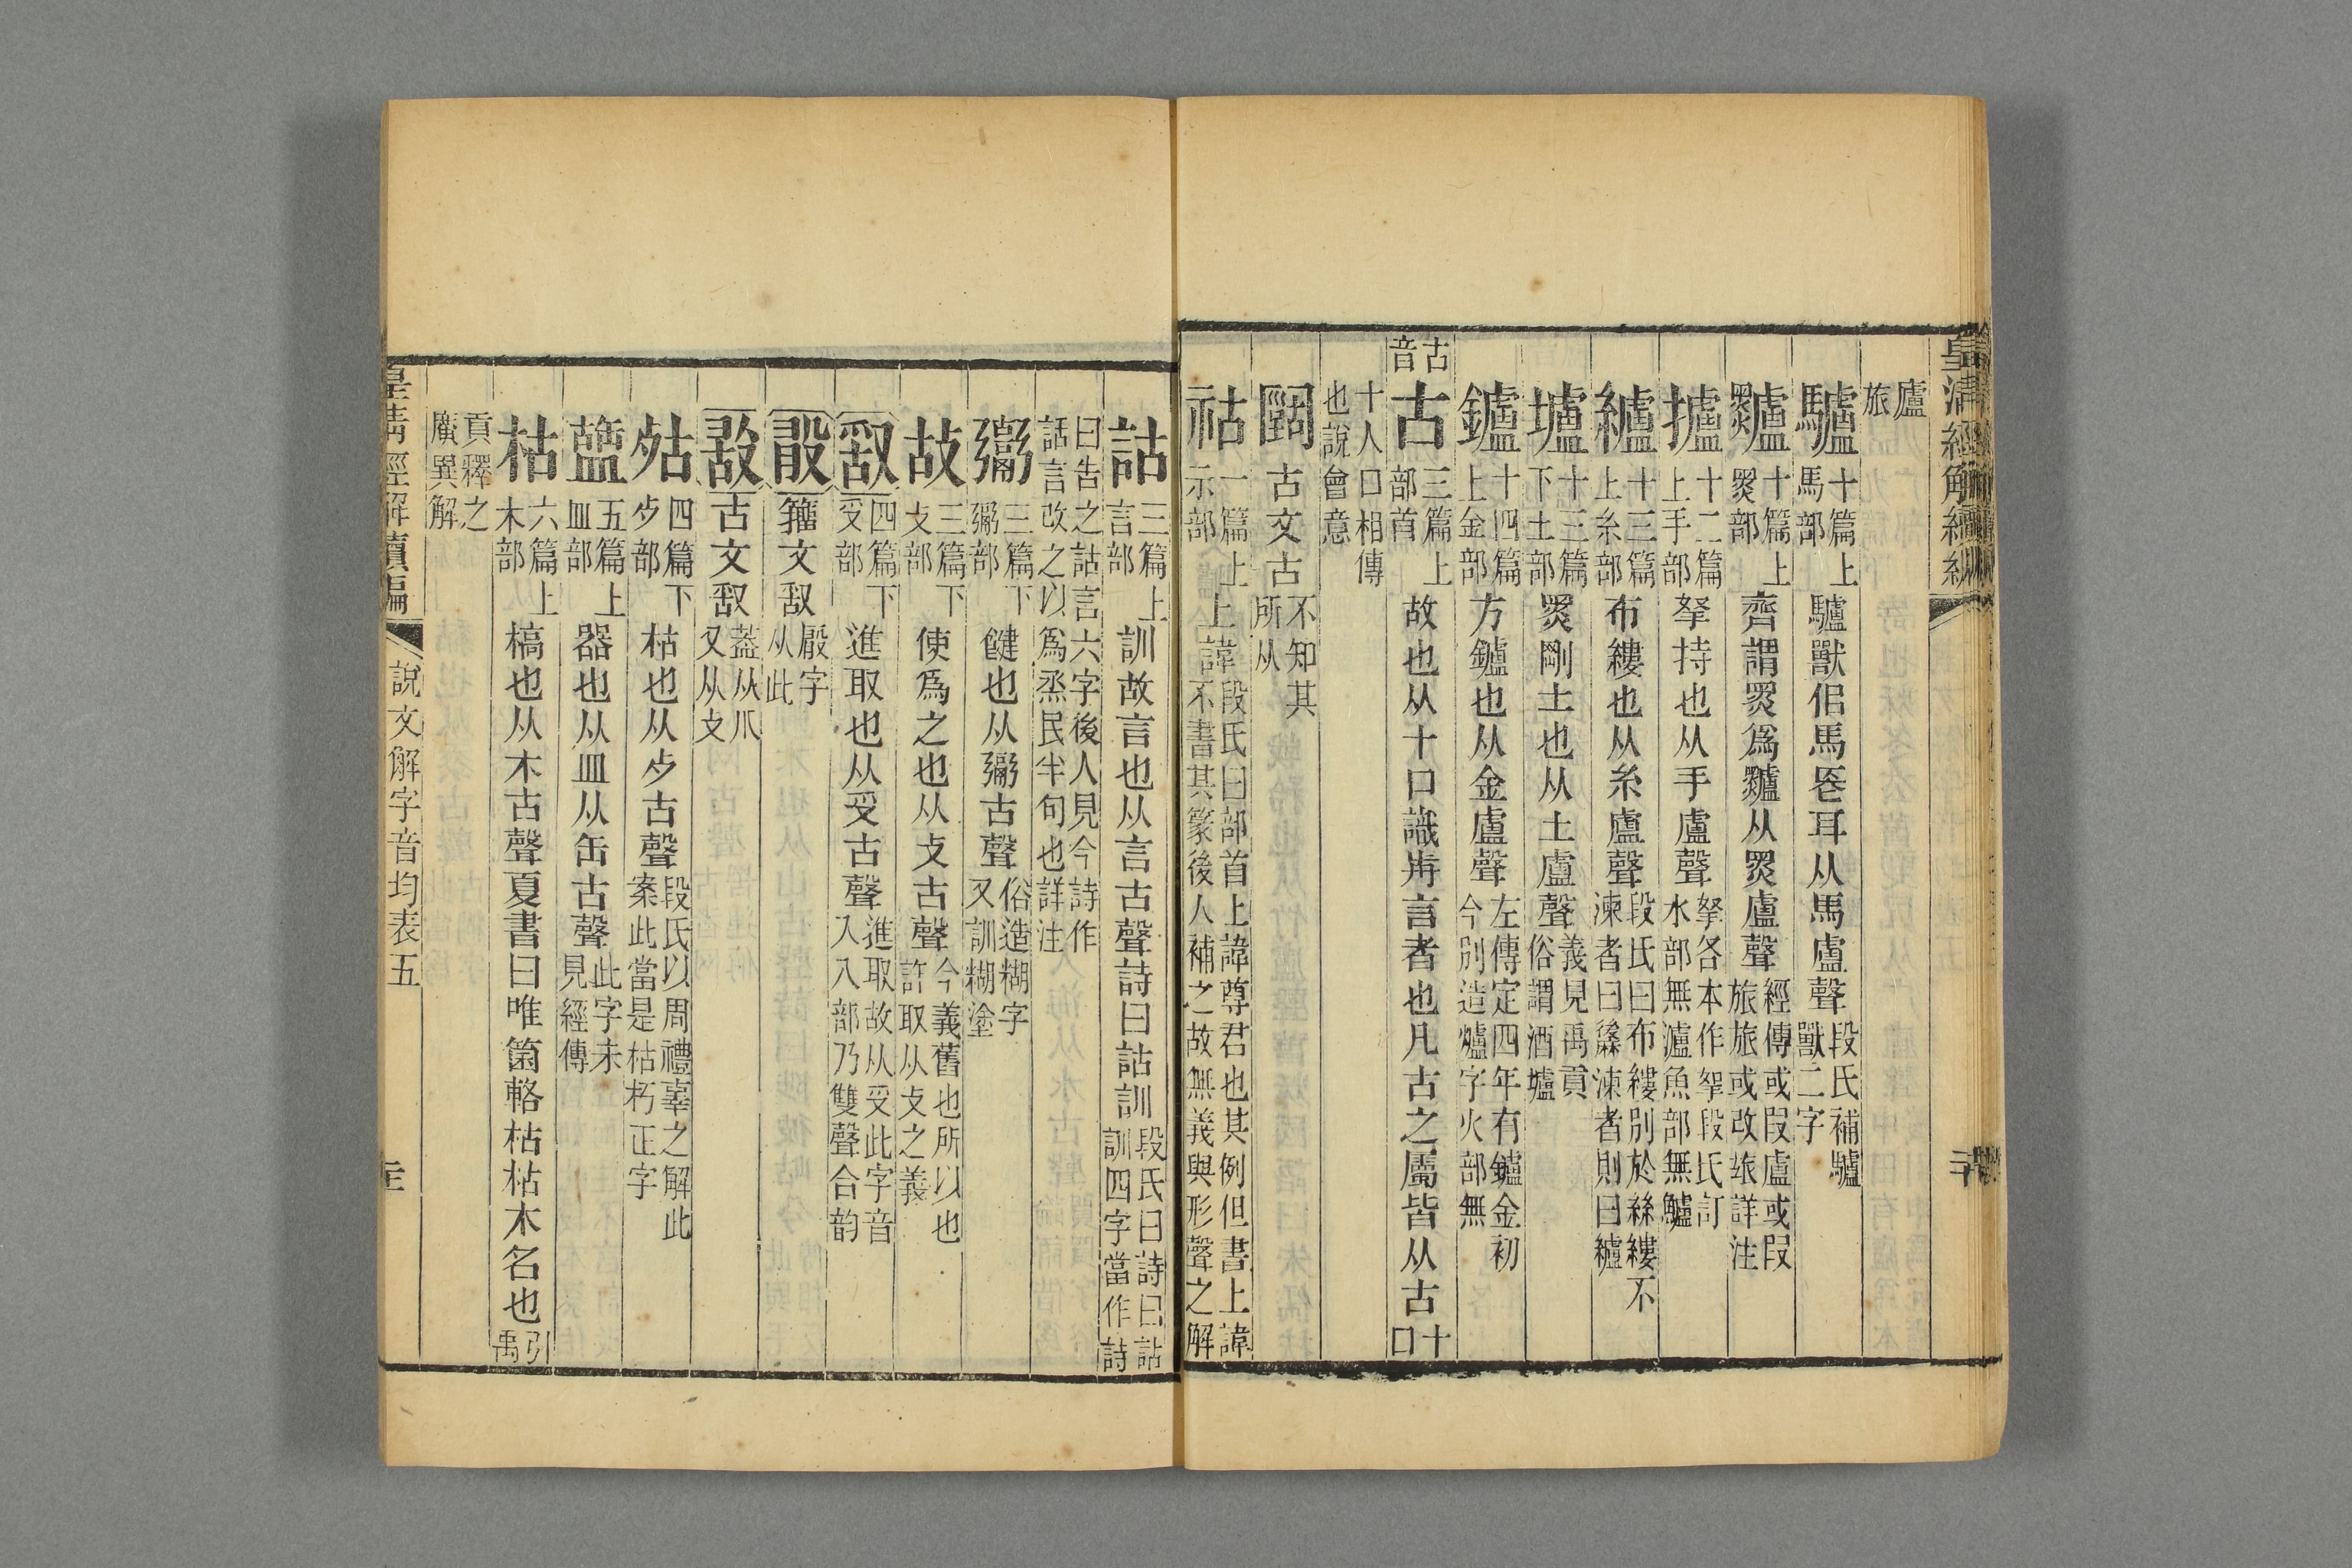 皇清經解續編
廬
旅
驢十篇上馬部驢獸佀馬𨱗耳从馬盧聲段氏補驢獸二字
𪏭十篇上㷅部齊謂㷅爲𪏭从㷅盧聲經傳或叚盧或叚旅旅或改玈詳注
攎十二篇上手部拏持也从手盧聲拏各本作挐段氏訂水部無瀘魚部無鱸
纑十三篇上糸部布縷也从糸盧聲段氏曰布縷別於絲縷不湅者曰綫湅者則曰纑
壚十三篇下土部㷅剛土也从土盧聲義見禹貢俗謂酒壚
鑪十四篇上金部方鑪也从金盧聲左傳定四年有鑪金初今別造爐字火部無
古音
古三篇上部首故也从十口識歬言者也凡古之屬皆从古十口
十人口相傳
也說會意
𠖠古文古不知其所从
祜一篇上示部上諱段氏曰部首上諱尊君也其例但書上諱不書其篆後人補之故無義與形聲之解
詁三篇上言部訓故言也从言古聲詩曰詁訓段氏曰詩曰詁訓四字當作詩
曰告之詁言六字後人見今詩作
話言改之以爲烝民半句也詳注
䰞三篇下䰜部健也从䰜古聲俗造糊字又訓糊塗
故三篇下攴部使爲之也从攴古聲今義舊也所以也許取从攴之義
𠭖四篇下𠬪部進取也从𠬪古聲進取故从𠬪此字音入入部乃雙聲合韵
㪉籒文𠭖殿字从此
敢古文𠭖蓋从爪又从攴
𣧎四篇下歺部枯也从歺古聲段氏以周禮辜之解此案此當是枯朽正字
䀇五篇上皿部器也从皿从缶古聲此字未見經傳
枯六篇上木部槁也从木古聲夏書曰唯箘簵枯枯木名也引禹
貢釋之
廣異解
皇淸經解續編
說文解字音均表五